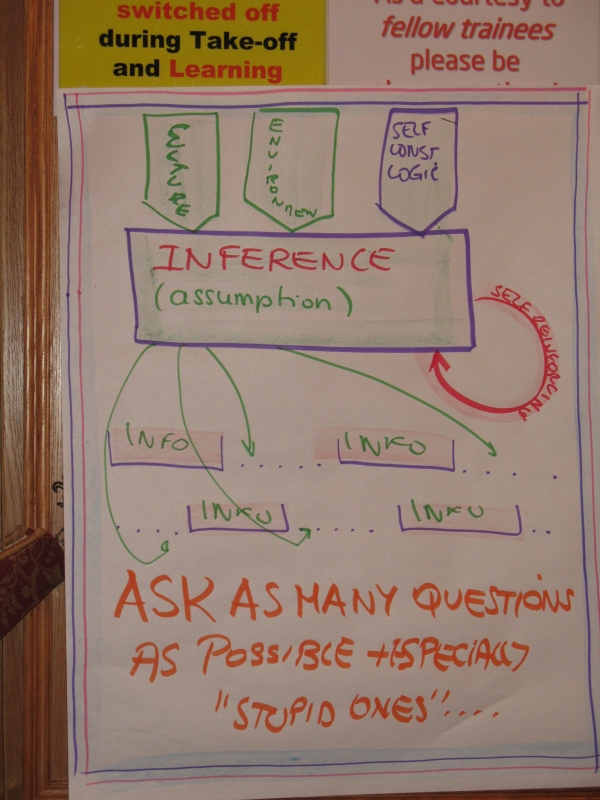 switched off
during Take-off
and Learning
As a courtesy to
fellow trainees
please be
CULTURE
ENVIRONMEN
SELF
CONST
LOGIC
INFERENCE
(assumption)
SELF REINFORCING
INFO
INFO
INFO
INFO
ASK AS MANY QUESTIONS
AS POSSIBLE + ESPECIALLY
"STUPID ONES"....